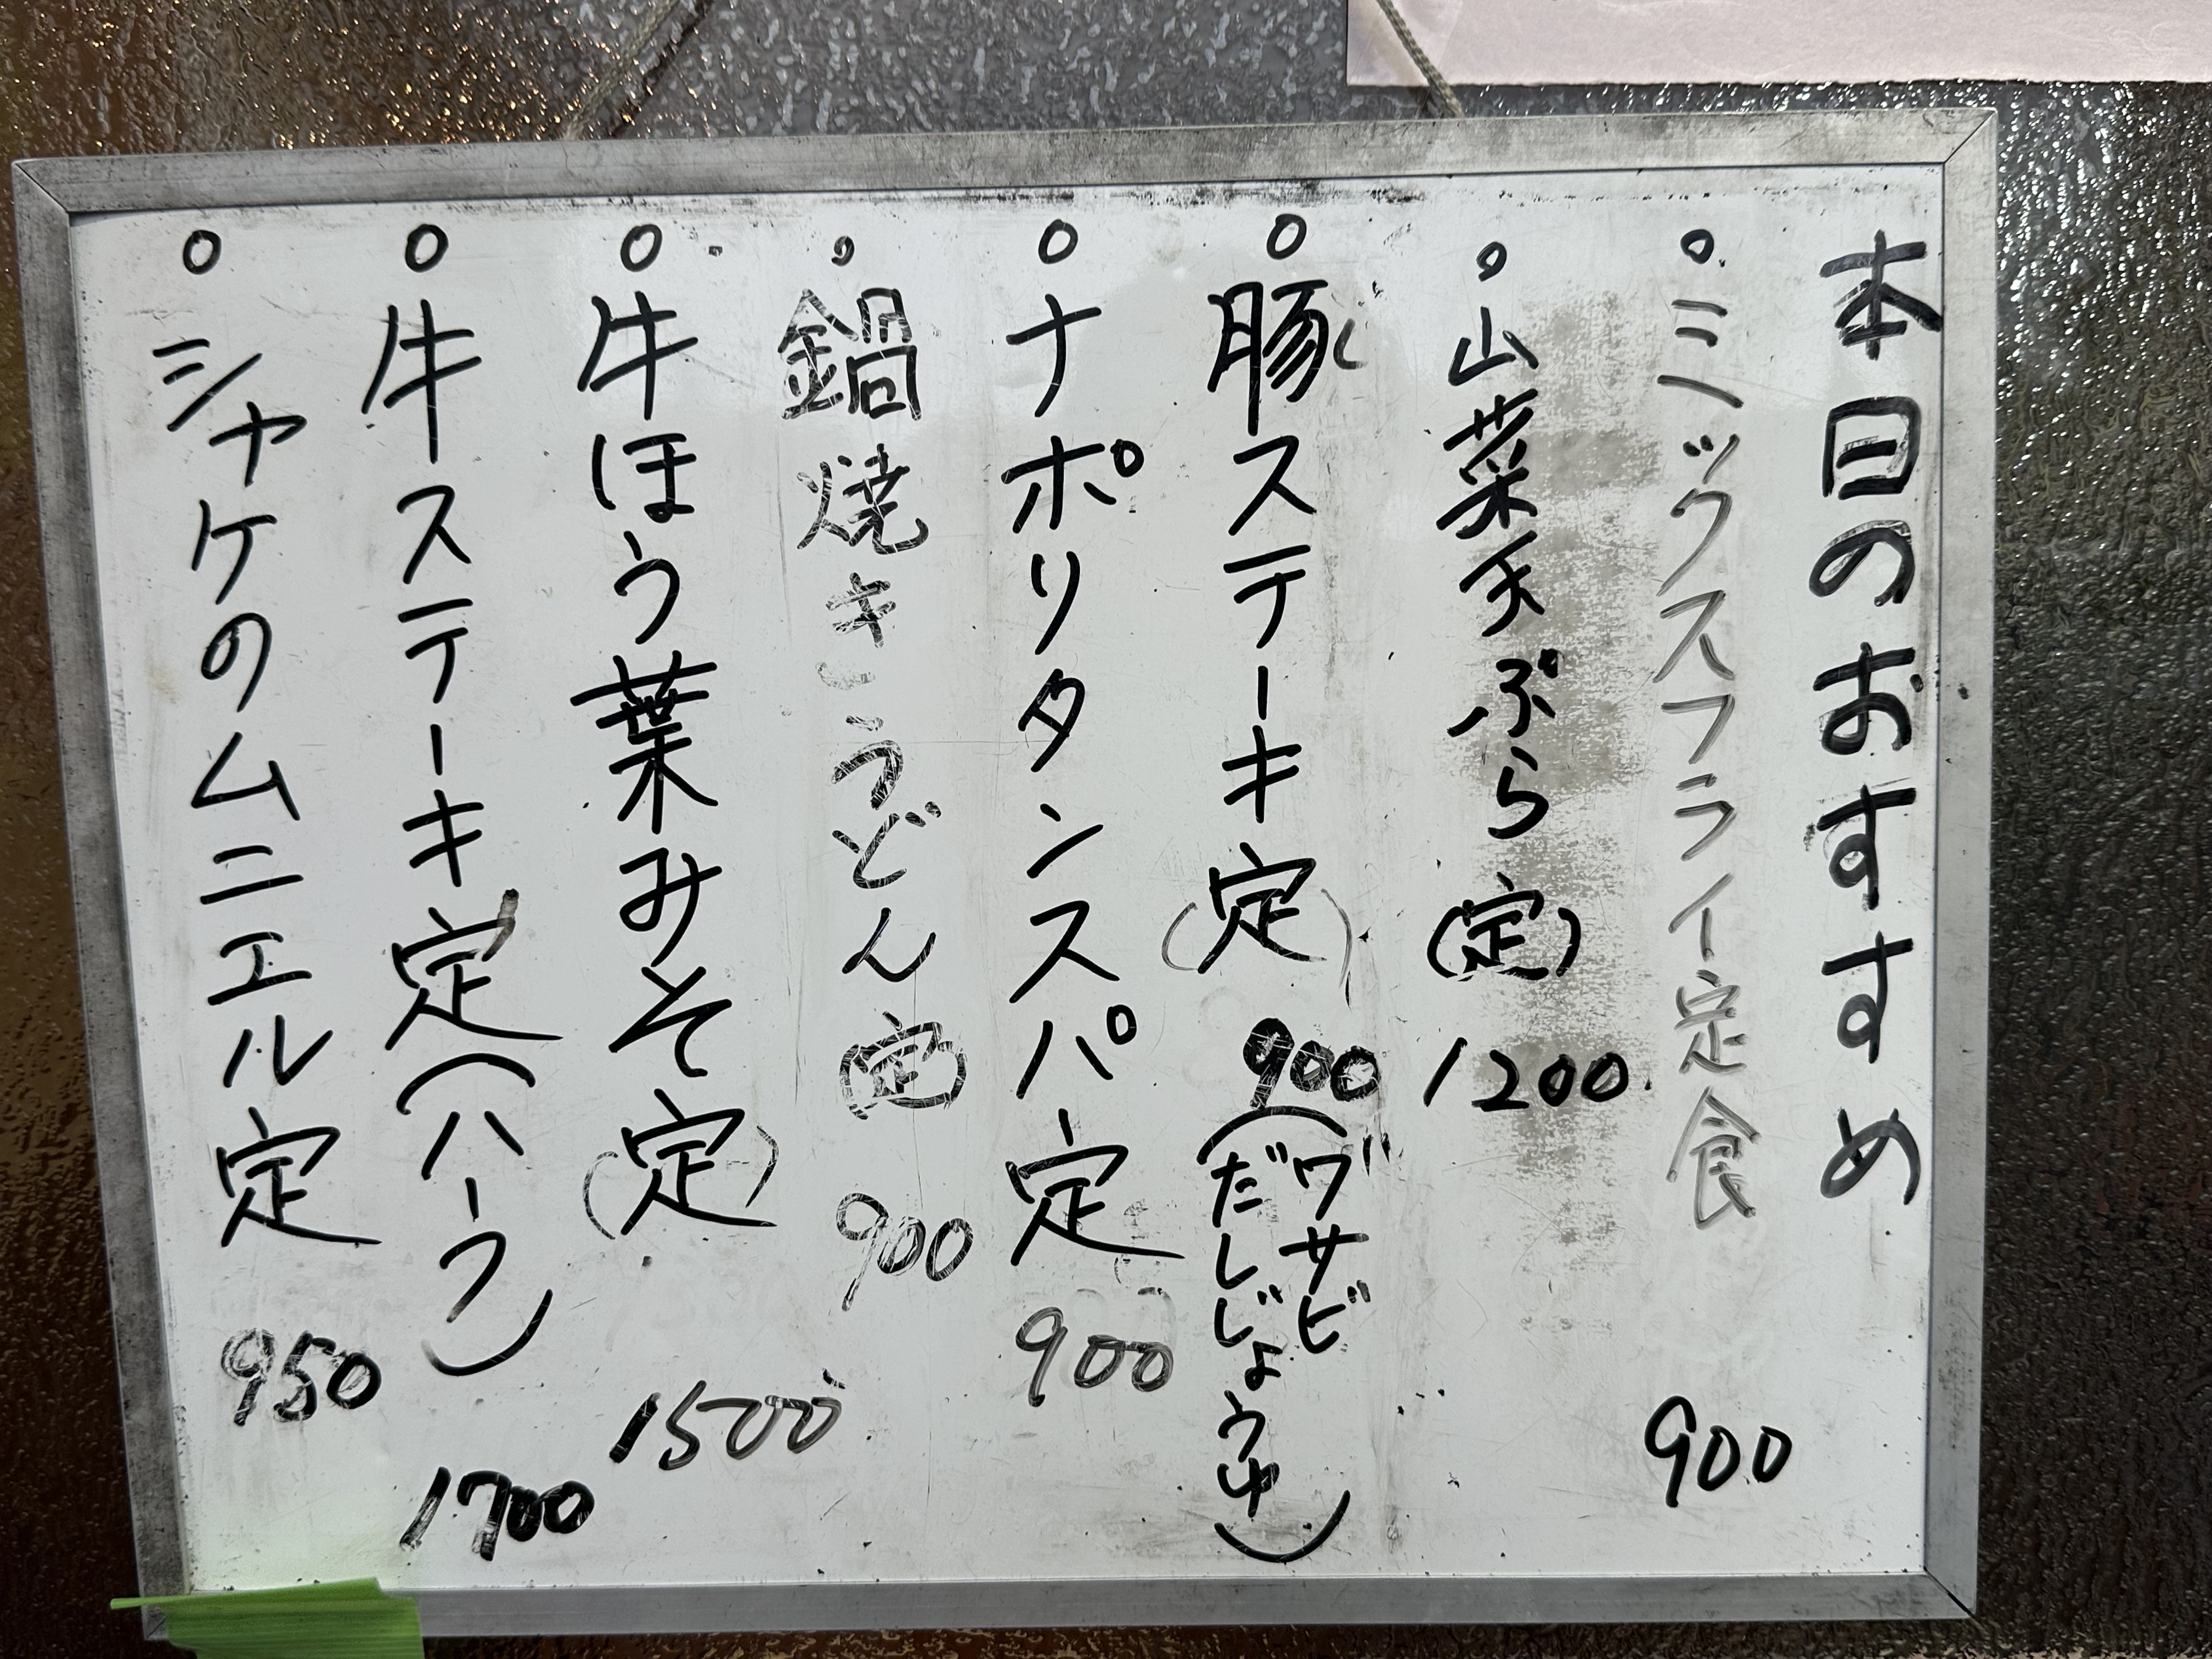 本日のおすすめ
ミックスフライ定食 900
山菜天ぷら(定) 1200
豚ステーキ定 900(ワサビだしじょうゆ)
ナポリタンスパ定 900
鍋焼きうどん(定) 900
牛ほう葉みそ(定) 1500
牛ステーキ定(ハーフ) 1700
シャケのムニエル定 950